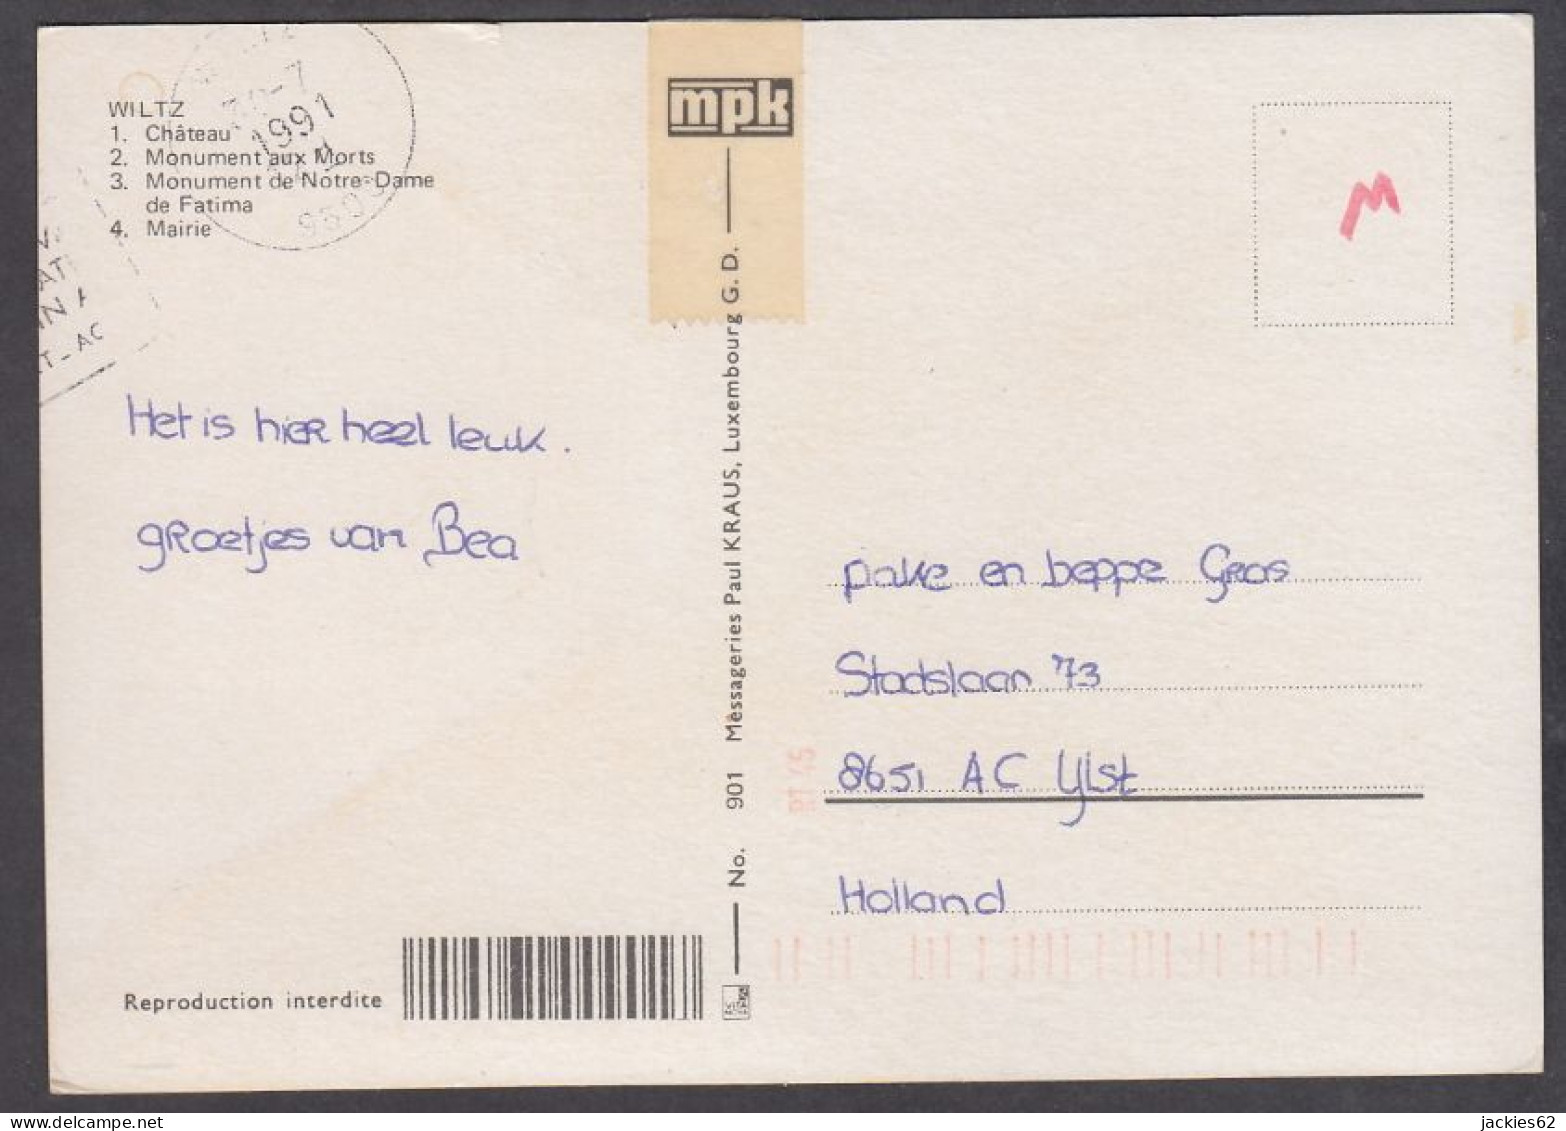 WILTZ
1. Château
2. Monument aux Morts
3. Monument de Notre-Dame
de Fatima
4. Mairie
1991
Het is hier heel leuk.
groetjes van Bea
Reproduction interdite
mpk
No. 901 Messageries Paul KRAUS, Luxembourg G. D.
M
pake en beppe Geos
Stadslaan 73
8651 AC Ylst
Holland
jackies62